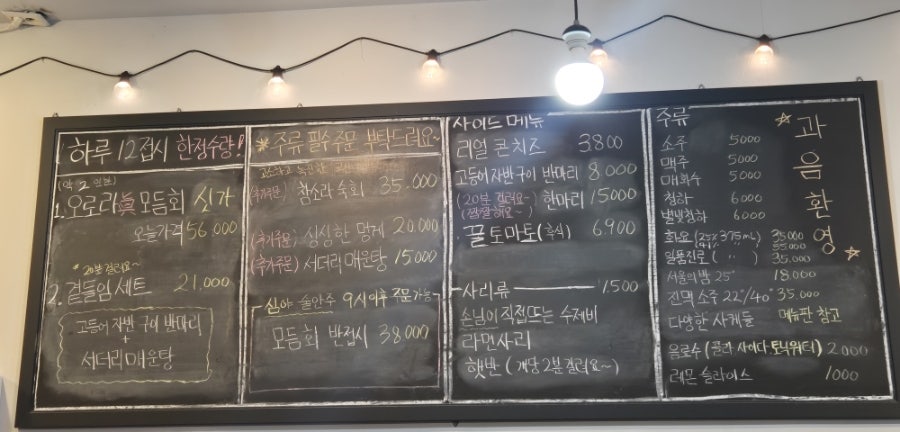 하루 12접시 한정수량!
(약 2인분)
1. 오로라眞 모듬회 싯가
오늘가격 56,000
* 20분 걸려요~
2. 곁들임 세트 21,000
고등어자반 구이 반마리
+
서더리매운탕
* 주류 필수주문 부탁드려요~
(추가주문) 참소라 숙회 35.000
(추가주문) 싱싱한 멍게 20.000
(추가주문) 서더리매운탕 15000
심야 술안주 9시이후 주문가능
모듬회 반접시 38,000
사이드 메뉴
리얼 콘치즈 3800
고등어자반구이 반마리 8000
(20분 걸려요~) 한마리 15000
(짭짤해요~)
꿀토마토(흑석) 6900
사리류 1.500
손님이직접뜨는 수제비
라면사리
햇반 (개당 2분걸려요~)
주류
과음환영
소주 5000
맥주 5000
매화수 5000
청하 6000
별빛청하 6000
화요 (25도 375mL) 35,000
35.000
일품진로 ( " ) 35,000
서울의밤 25° 18.000
진맥소주 22°/40° 35.000
다양한 사케들 메뉴판 참고
음료수 (콜라 사이다 토닉워터) 2000
레몬 슬라이스 1000